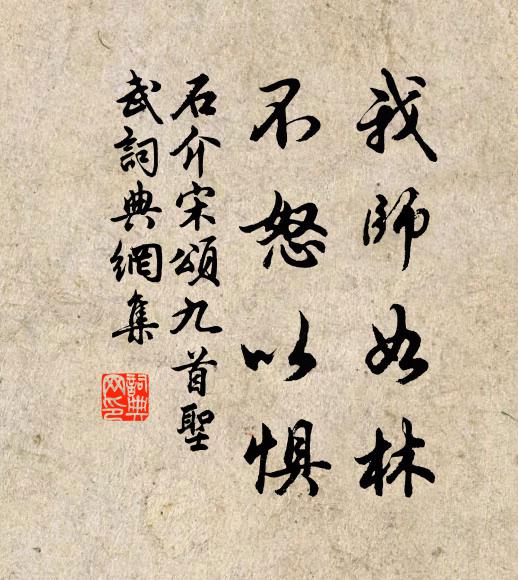 我師如林
不怒以懼
石介宋頌九首聖
武詞典網集
詞典
网印